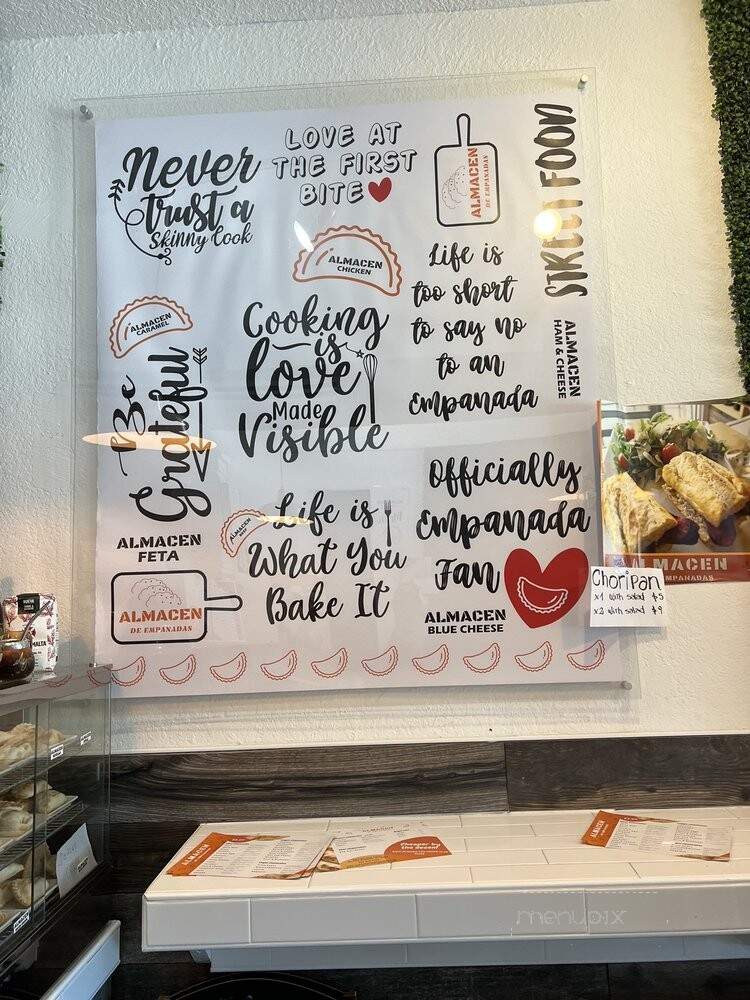 Never
trust a
Skinny Cook
LOVE AT
THE FIRST
BITE
ALMACEN
DE EMPANADAS
STREET FOOD
ALMACEN
CHICKEN
Life is
too short
to say no
to an
Empanada
ALMACEN
CARAMEL
Cooking
is
love
Made
Visible
ALMACEN
HAM & CHEESE
Be
Grateful
Officially
Empanada
Fan
ALMACEN
BLUE CHEESE
Life is
What You
Bake It
ALMACEN
ALMACEN
FETA
ALMACEN
DE EMPANADAS
ALMACEN
EMPANADAS
Choripan
x1 with salad $5
x2 with salad $9
ALMACEN
Cheaper by
the dozen!
ALMACEN
menupix